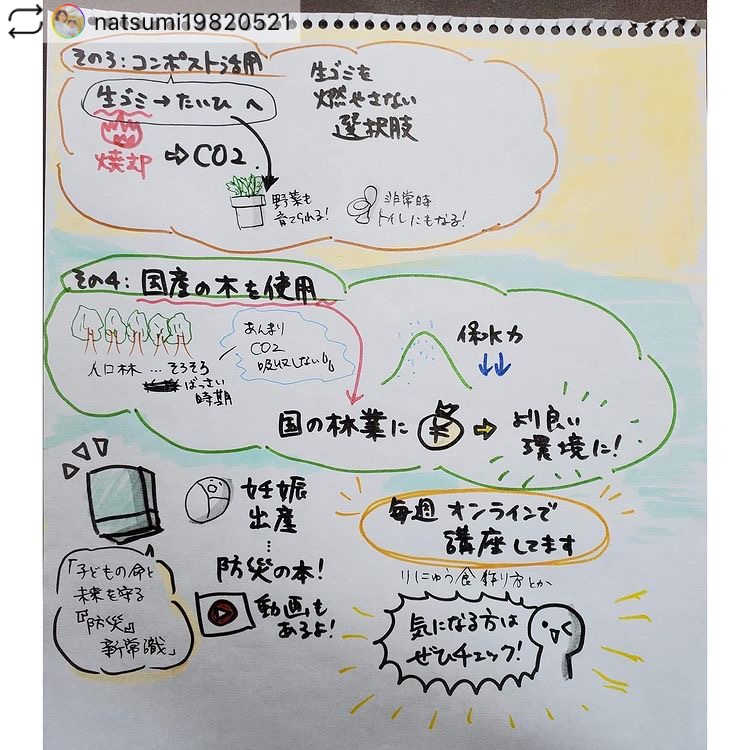 natsumi19820521
その3:コンポスト活用
生ゴミ→たいひ へ
焼却 ⇨ CO2
生ゴミを
燃やさない
選択肢
野菜も
育てられる!
非常時
トイレにもなる!
その4: 国産の木を使用
人口林…そろそろ
ばっさい
時期
あんまり
CO2
吸収しない
保水力
国の林業に ¥ ⇨ より良い
環境に!
妊娠
出産
…
防災の本!
動画も
あるよ!
「子どもの命と
未来を守る
『防災』
新常識」
毎週 オンラインで
講座してます
りにゅう食 作り方とか
気になる方は
ぜひチェック!